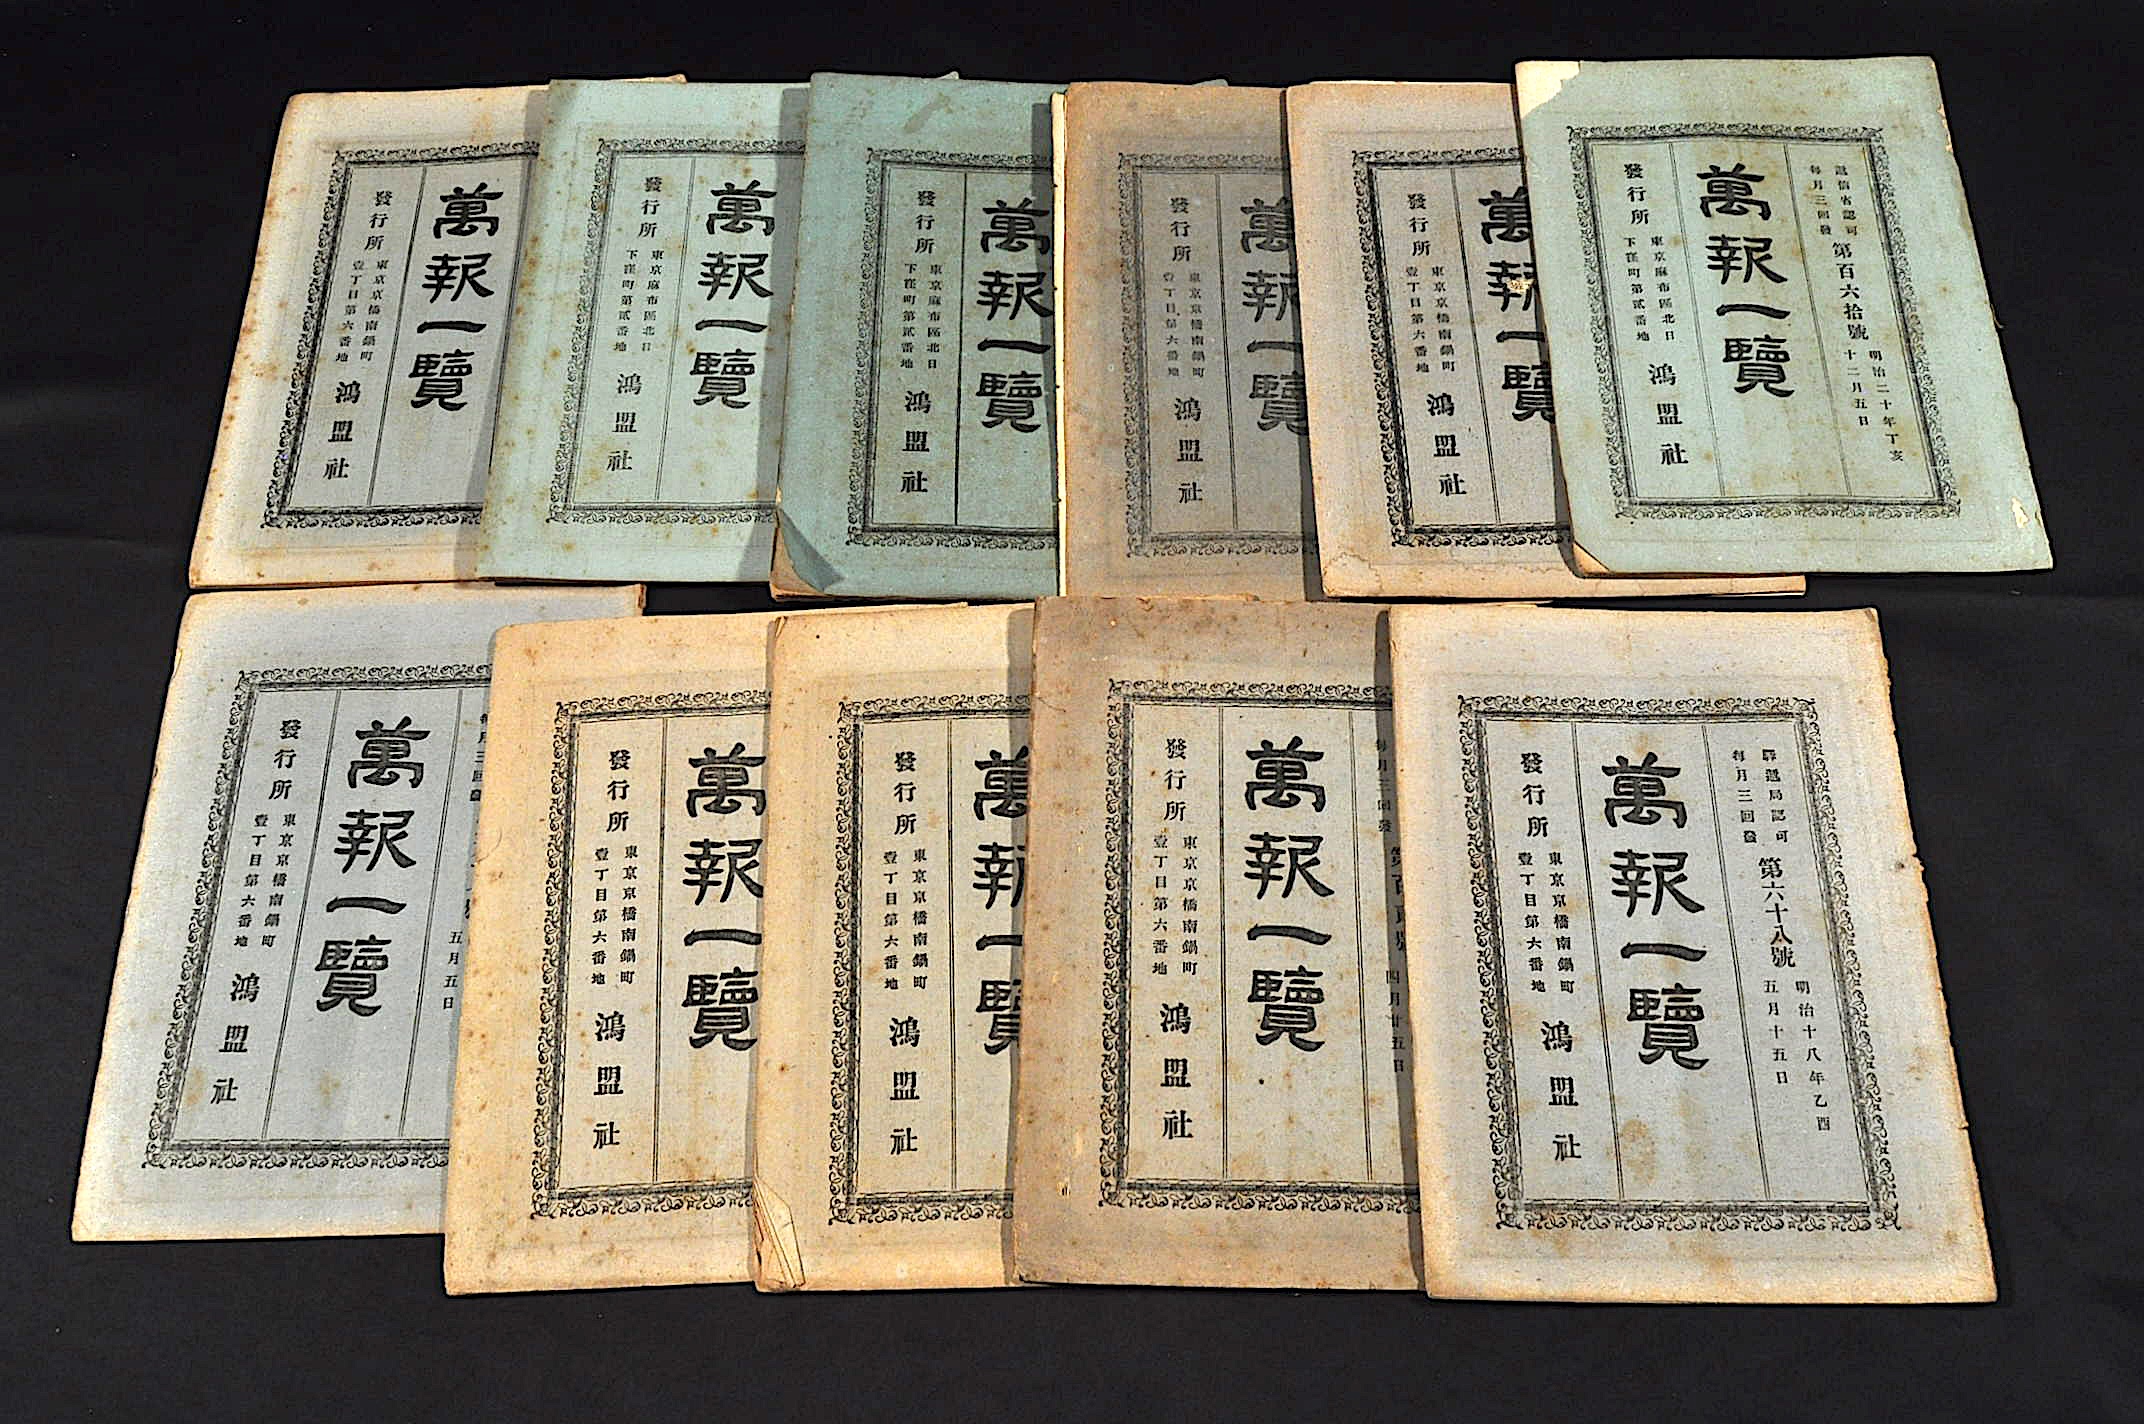 萬報一覽
發行所
東京京橋南鍋町
壹丁目第六番地
鴻盟社
萬報一覽
發行所
東京麻布區北日
下窪町第貳番地
鴻盟社
萬報一覽
發行所
東京麻布區北日
下窪町第貳番地
鴻盟社
萬報一覽
發行所
東京京橋南鍋町
壹丁目第六番地
鴻盟社
萬報一覽
發行所
東京京橋南鍋町
壹丁目第六番地
鴻盟社
遞信省認可
每月三回發
第百六拾號
明治二十年丁亥
十二月五日
萬報一覽
發行所
東京麻布區北日
下窪町第貳番地
鴻盟社
每月三回發
五月五日
萬報一覽
發行所
東京京橋南鍋町
壹丁目第六番地
鴻盟社
萬報一覽
發行所
東京京橋南鍋町
壹丁目第六番地
鴻盟社
萬報一覽
發行所
東京京橋南鍋町
壹丁目第六番地
鴻盟社
每月三回發
四月廿五日
萬報一覽
發行所
東京京橋南鍋町
壹丁目第六番地
鴻盟社
驛遞局認可
每月三回發
第六十八號
明治十八年乙酉
五月十五日
萬報一覽
發行所
東京京橋南鍋町
壹丁目第六番地
鴻盟社